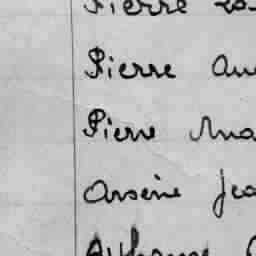 Pierre
Pierre Au
Pierre Ma
Arsène Jea
Alphonse